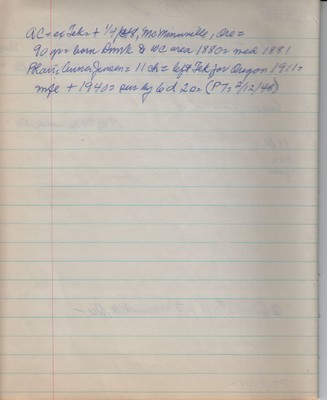 AC = ex Tek = + 1/4/48, McMinnville, Ore =
90 yr = born Dmrk & WC area 1880 = med 1881
Anner Jensen = 11 ch = left Tek for Oregon 1911 =
mfe + 1940 = sur by 6 d 2 s = (PT = 2/12/48)